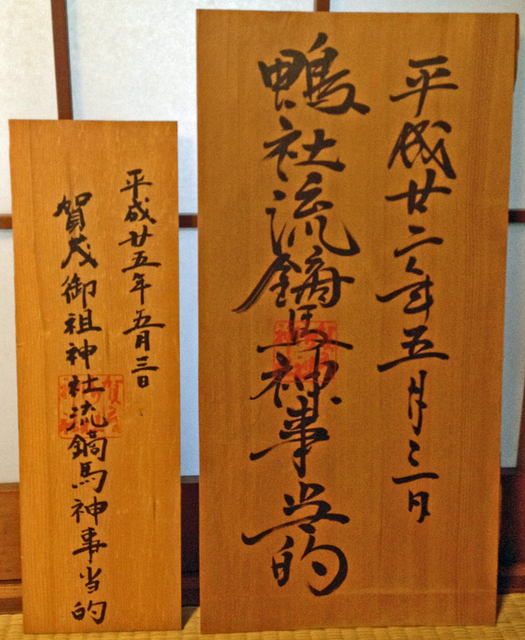 平成廿二年五月三日
鴨社流鏑馬神事当的
平成廿五年五月三日
賀茂御祖神社流鏑馬神事当的